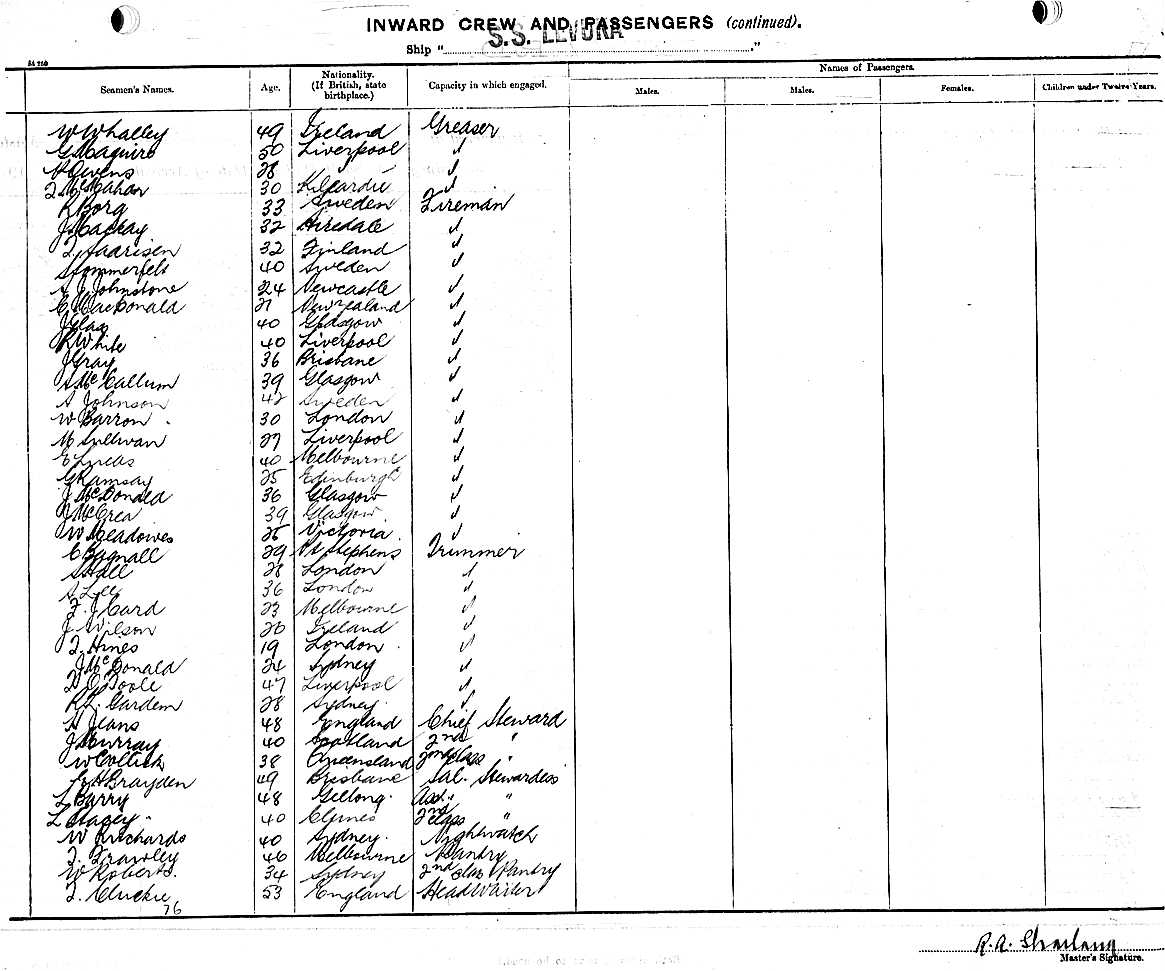 INWARD CREW AND PASSENGERS (continued).
Ship "S.S. LEVUKA"
Seamen's Names. Age. Nationality. (If British, state birthplace.) Capacity in which engaged. Names of Passengers.
Males. Males. Females. Children under Twelve Years.
W Whalley 49 Ireland Greaser
G Maguire 50 Liverpool "
H Owens 28 " "
T McMahon 30 "
R Borg 33 Sweden Fireman
J Mackay 32 Airedale "
T. Haarisen 32 Finland "
Sommerfelt 40 Sweden "
A J Johnstone 24 Newcastle "
C MacDonald 27 New Zealand "
J Glas 40 Glasgow "
R White 40 Liverpool "
J Gray 36 Brisbane "
A McCallum 39 Glasgow "
A Johnson 42 Sweden "
W Barron 30 London "
M Sullivan 27 Liverpool "
E Lucas 40 Melbourne "
G Ramsay 25 Edinburgh "
J McDonald 36 Glasgow "
J McCrea 39 Glasgow "
W Meadowes 26 Victoria "
C Bagnall 29 Pt Stephens Trimmer
S Hall 28 London "
A Lee 36 London "
F. J Card 23 Melbourne "
J Wilson 20 Ireland "
T. Hines 19 London "
J McDonald 24 Sydney "
D O'Toole 47 Liverpool "
R L. Gardem 28 Sydney "
A Jeans 48 England Chief Steward
J Murray 40 Scotland 2nd "
W Collick 38 Queensland 2nd Class "
H Brayden 49 Brisbane Sal. Stewardess
L Barry 48 Gellong. Asst. "
L Stacey 40 Clunes 2nd Class "
W Richards 40 Sydney Nightwatch
T. Frawley 46 Melbourne Pantry
W Roberts. 34 Sydney 2nd Clas Pantry
T. Cluckie 53 England Head Waiter
76
Master's Signature.